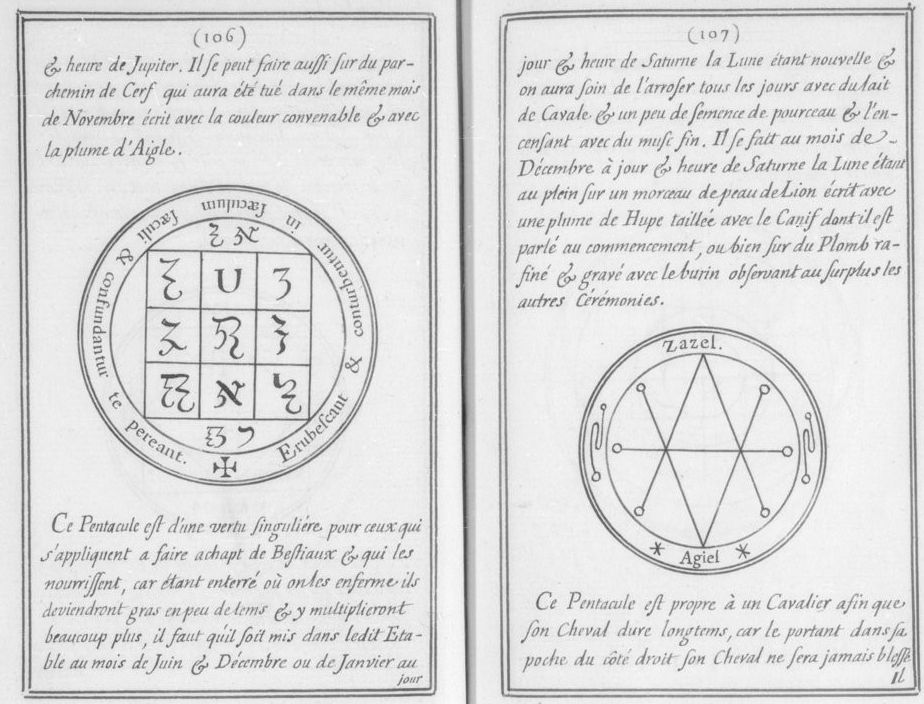 (106)
& heure de Jupiter. Il se peut faire aussi sur du par-
chemin de Cerf qui aura été tué dans le même mois
de Novembre écrit avec la couleur convenable & avec
la plume d'Aigle.
Erubescant & conturbentur in sæculum sæculi & confundantur te pereant.
U
Ce Pentacule est d'une vertu singuliére pour ceux qui
s'appliquent a faire achapt de Bestiaux & qui les
nourrissent, car étant enterré où on les enferme ils
deviendront gras en peu de tems & y multiplieront
beaucoup plus, il faut qu'il soit mis dans ledit Eta-
ble au mois de Juin & Décembre ou de Janvier au
jour
(107)
jour & heure de Saturne la Lune étant nouvelle &
on aura soin de l'arroser tous les jours avec du lait
de Cavale & un peu de semence de pourceau & l'en-
censant avec du musc fin. Il se fait au mois de
Décembre à jour & heure de Saturne la Lune étant
au plein sur un morceau de peau de Lion écrit avec
une plume de Hupe taillée avec le Canif dont il est
parlé au commencement, ou bien sur du Plomb ra-
finé & gravé avec le burin observant au surplus les
autres Cérémonies.
Zazel.
Agiel
Ce Pentacule est propre à un Cavalier afin que
son Cheval dure longtems, car le portant dans sa
poche du côté droit son Cheval ne sera jamais blessé
Il